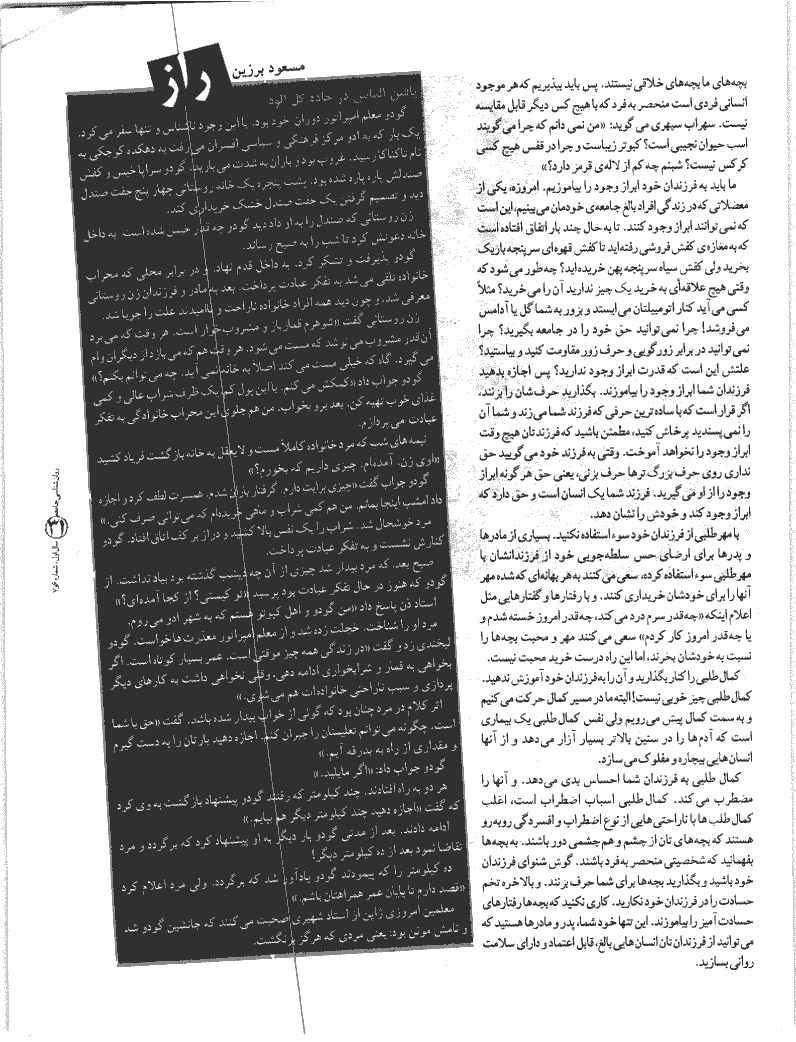 بچه‌های ما بچه‌های خلاقی نیستند. پس باید بپذیریم که هر موجود
انسانی فردی است منحصر به فرد که با هیچ کس دیگر قابل مقایسه
نیست. سهراب سپهری می گوید: «من نمی دانم که چرا می گویند
اسب حیوان نجیبی است؟ کبوتر زیباست و چرا در قفس هیچ کسی
کرکس نیست؟ شبنم چه کم از لاله‌ی قرمز دارد؟»
ما باید به فرزندان خود ابراز وجود را بیاموزیم. امروزه، یکی از
معضلاتی که در زندگی افراد بالغ جامعه‌ی خودمان می‌بینیم، این است
که نمی‌توانند ابراز وجود کنند. تا به حال چند بار اتفاق افتاده است
که به مغازه‌ی کفش فروشی رفته‌اید تا کفش قهوه‌ای سرپنجه باریک
بخرید ولی کفش سیاه سرپنجه پهن خریده‌اید؟ چه‌طور می‌شود که
وقتی هیچ علاقه‌ای به خرید یک چیز ندارید آن را می‌خرید؟ مثلاً
کسی می‌آید کنار اتومبیلتان می‌ایستد و بزور به شما گل یا آدامس
می‌فروشد! چرا نمی توانید حق خود را در جامعه بگیرید؟ چرا
نمی‌توانید در برابر زورگویی و حرف زور مقاومت کنید و بیاستید؟
علتش این است که قدرت ابراز وجود ندارید؟ پس اجازه بدهید
فرزندان شما ابراز وجود را بیاموزند. بگذارید حرف‌شان را بزنند،
اگر قرار است که با ساده‌ترین حرفی که فرزند شما می‌زند و شما آن
را نمی‌پسندید پرخاش کنید، مطمئن باشید که فرزندتان هیچ وقت
ابراز وجود را نخواهد آموخت. وقتی به فرزند خود می‌گویید حق
نداری روی حرف بزرگ‌ترها حرف بزنی، یعنی حق هر گونه ابراز
وجود را از او می‌گیرید. فرزند شما یک انسان است و حق دارد که
ابراز وجود کند و خودش را نشان دهد.
با مهرطلبی از فرزندان خود سوء استفاده نکنید. بسیاری از مادرها
و پدرها برای ارضای حس سلطه‌جویی خود از فرزندانشان با
مهرطلبی سوء استفاده کرده، سعی می‌کنند به هر بهانه‌ای که شده مهر
آنها را برای خودشان خریداری کنند. و با رفتارها و گفتارهایی مثل
اعلام اینکه «چه‌قدر سرم درد می‌کند، چه‌قدر امروز خسته شدم و
یا چه‌قدر امروز کار کردم» سعی می‌کنند مهر و محبت بچه‌ها را
نسبت به خودشان بخرند، اما این راه درست خرید محبت نیست.
کمال‌طلبی را کنار بگذارید و آن را به فرزند خود آموزش ندهید.
کمال‌طلبی چیز خوبی نیست! البته ما در مسیر کمال حرکت می‌کنیم
و به سمت کمال پیش می‌رویم ولی نفس کمال‌طلبی یک بیماری
است که آدم‌ها را در سنین بالاتر بسیار آزار می‌دهد و از آنها
انسان‌هایی بیچاره و مفلوک می‌سازد.
کمال طلبی به فرزندان شما احساس بدی می‌دهد. و آنها را
مضطرب می کند. کمال طلبی اسباب اضطراب است، اغلب
کمال طلب ها با ناراحتی‌هایی از نوع اضطراب و افسردگی روبه‌رو
هستند که بچه‌های تان از چشم و هم‌چشمی دور باشند. به بچه‌ها
بفهمانید که شخصیتی منحصر به‌فرد باشند. گوش شنوای فرزندان
خود باشید و بگذارید بچه‌ها برای شما حرف بزنند. و بالاخره تخم
حسادت را در فرزندان خود نکارید. کاری نکنید که بچه‌ها رفتارهای
حسادت آمیز را بیاموزند. این تنها خود شما، پدر و مادرها هستید که
می‌توانید از فرزندان‌تان انسان‌هایی بالغ، قابل اعتماد و دارای سلامت
روانی بسازید.
راز
مسعود برزین
یافتن الماس در جاده گل آلود
گودو معلم امپراتور دوران خود بود. با این وجود ناشناس و تنها سفر می کرد.
یک بار که به ادو مرکز فرهنگی و سیاسی افسران می‌رفت به دهکده کوچکی به
نام تاکناکا رسید. غروب بود و باران به شدت می بارید. گودو سراپا خیس و کفش
صندلش پاره پاره شده بود. پشت پنجره یک خانه روستائی چهار پنج جفت صندل
دید و تصمیم گرفتن یک جفت صندل خشک خریداری کند.
زن روستائی که صندل را به او داد دید گودو چه قدر خیس شده است. به داخل
خانه دعوتش کرد تا شب را به صبح رساند.
گودو پذیرفت و تشکر کرد. به داخل قدم نهاد. و در برابر محلی که محراب
خانواده تلقی می شد به تفکر عبادت پرداخت. بعد به مادر و فرزندان زن روستائی
معرفی شد. و چون دید همه افراد خانواده ناراحت و ناامیدند علت را جویا شد.
زن روستائی گفت «شوهرم قمارباز و مشروب‌خوار است. هر وقت که می برد
آن قدر مشروب می نوشد که مست می شود. هر وقت هم که می بازد از دیگران وام
می گیرد. گاه که خیلی مست می کند اصلاً به خانه نمی آید. چه می توانم بکنم؟»
گودو جواب داد «کمکش می کنم. با این پول کم، یک ظرف شراب عالی و کمی
غذای خوب تهیه کن. بعد برو بخواب. من هم جلوی این محراب خانوادگی به تفکر
عبادت می پردازم.
نیمه های شب که مرد خانواده کاملاً مست و لایعقل به خانه بازگشت فریاد کشید
«اوی زن، آمده‌ام. چیزی داریم که بخورم؟»
گودو جواب گفت «چیزی برایت دارم. گرفتار باران شدم. همسرت لطف کرد و اجازه
داد امشب اینجا بمانم. من هم کمی شراب و ماهی خریده‌ام که می‌توانی صرف کنی.»
مرد خوشحال شد. شراب را یک نفس بالا کشید و دراز بر کف اتاق افتاد. گودو
کنارش نشست و به تفکر عبادت پرداخت.
صبح بعد، که مرد بیدار شد چیزی از آن چه دیشب گذشته بود بیاد نداشت. از
گودو که هنوز در حال تفکر عبادت بود پرسید «تو کیستی؟ از کجا آمده‌ای؟»
استاد ذن پاسخ داد «من گودو و اهل کیوتو هستم که به شهر ادو می روم.
مرد او را شناخت. خجلت زده شد و از معلم امپراتور معذرت‌ها خواست. گودو
لبخندی زد و گفت «در زندگی همه چیز موقتی است. عمر بسیار کوتاه است. اگر
بخواهی به قمار و شرابخواری ادامه دهی، وقتی نخواهی داشت به کارهای دیگر
پردازی و سبب ناراحتی خانواده‌ات هم می‌شوی.»
اثر کلام در مرد چنان بود که گوئی از خواب بیدار شده باشد. گفت «حق با شما
است. چگونه می توانم تعلیمتان را جبران کنم. اجازه دهید بارتان را به دست گیرم
و مقداری از راه به بدرقه آیم.»
گودو جواب داد: «اگر مایلید.»
هر دو به راه افتادند. چند کیلومتر که رفتند گودو پیشنهاد بازگشت به وی کرد
که گفت «اجازه دهید چند کیلومتر دیگر هم بیایم.»
ادامه دادند. بعد از مدتی گودو بار دیگر به او پیشنهاد کرد که برگردد و مرد
تقاضا نمود بعد از ده کیلومتر دیگر!
ده کیلومتر را که پیمودند گودو یادآور شد که برگردد. ولی مرد اعلام کرد
«قصد دارم تا پایان عمر همراهتان باشم.»
معلمین امروزی ژاپن از استاد شهیری صحبت می کنند که جانشین گودو شد
و نامش مونن بود: یعنی مردی که هرگز برنگشت.
روان‌شناسی جامعه
سال اول، شماره